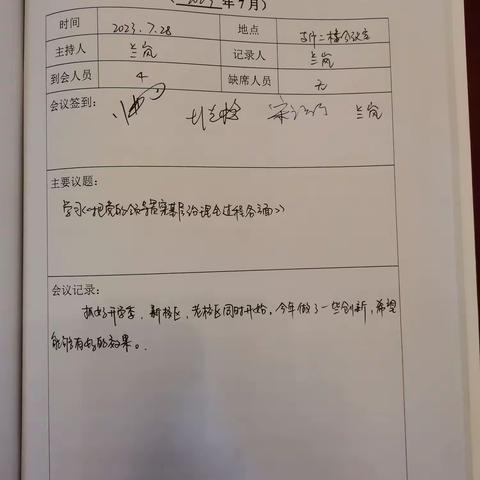 2023 年 7 月）
时间 2023.7.28 地点 支行二楼会议室
主持人 兰岚 记录人 兰岚
到会人员 4 缺席人员 无
会议签到： 兰岚
主要议题：
学习《把党的领导落实基层治理全过程各方面》
会议记录：
抓好开窗季，新校区，老校区同时开始。今年做了一些创新，希望
能够有好的效果。